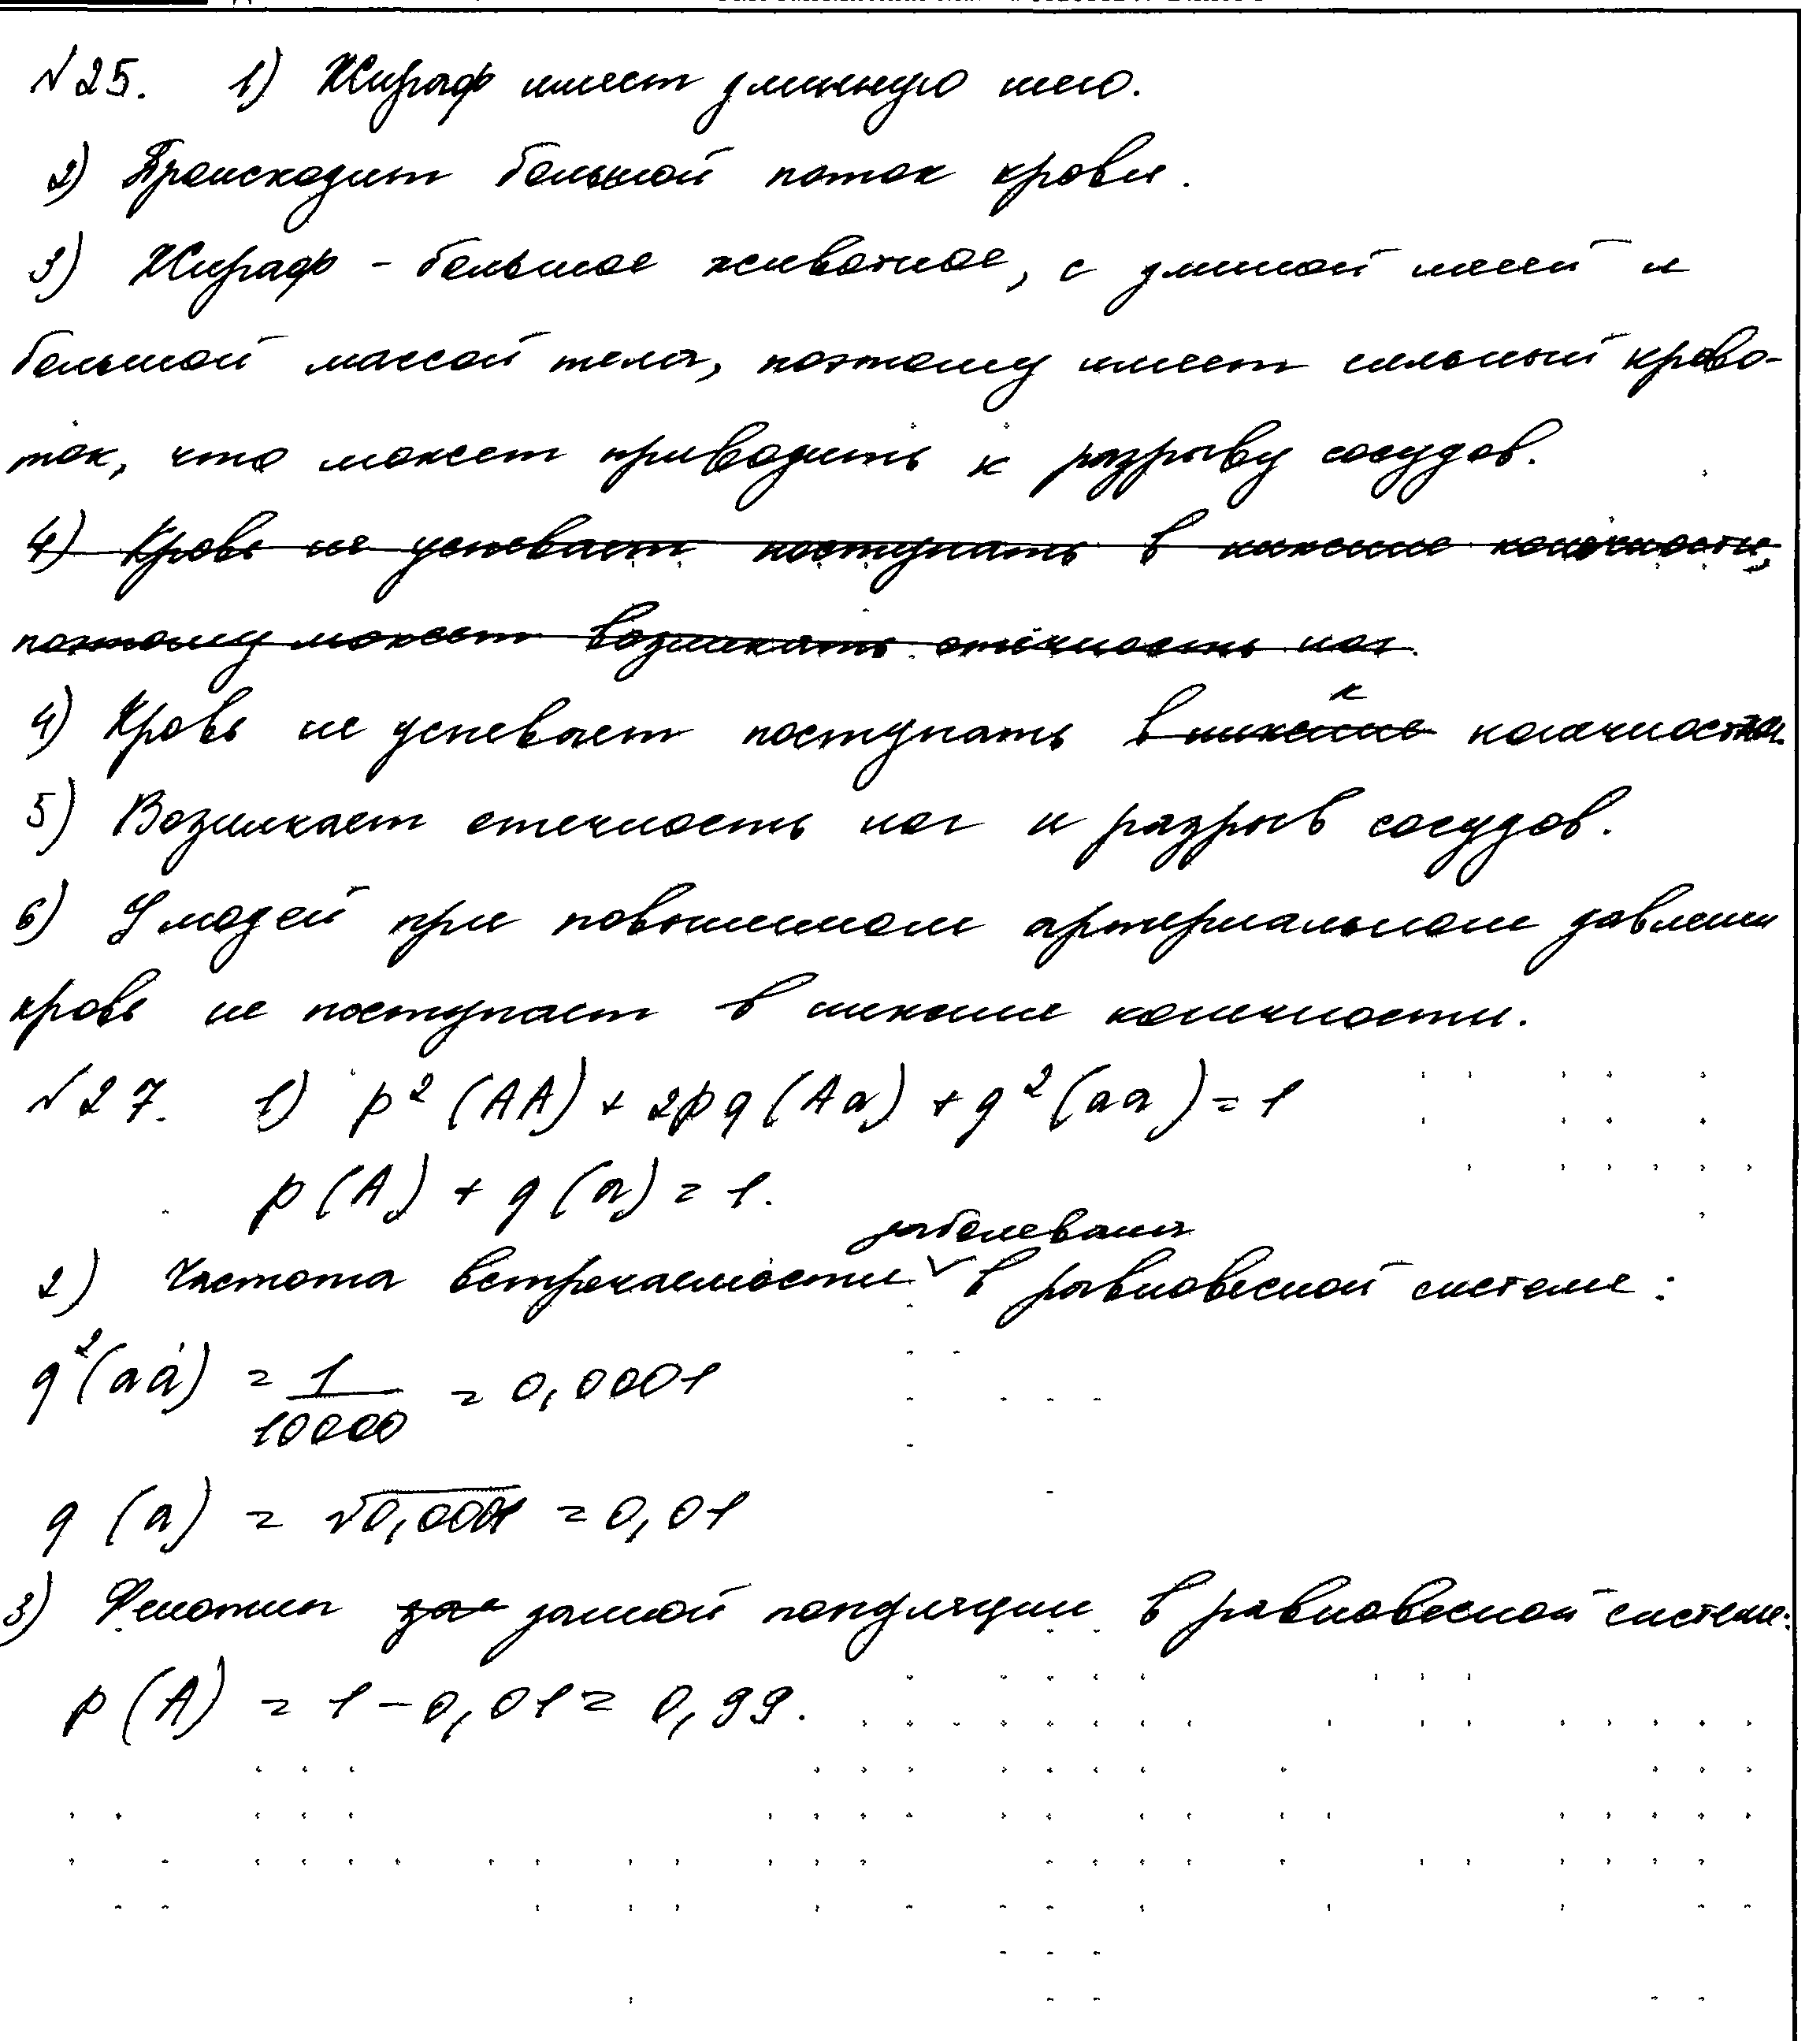 №25. 1) Жираф имеет длинную шею.
2) Происходит большой поток крови.
3) Жираф - большое животное, с длиной шеей и
большой массой тела, поэтому имеет сильный крово-
ток, что может приводить к разрыву сосудов.
4) Кровь не успевает поступать в нижние конечности,
поэтому может возникать отёчность ног.
к
4) Кровь не успевает поступать в нижние конечностям.
5) Возникает отечность ног и разрыв сосудов.
6) У людей при повышенном артериальном давлении
кровь не поступает в нижние конечности.
№27. 1) p²(AA) + 2pq(Aa) + q²(aa) = 1
p(A) + q(a) = 1.
заболевания
2) Частота встречаемости в равновесной системе:
q²(aa) = 1/10000 = 0,0001
q(a) = √0,0001 = 0,01
3) Фенотип данной популяции в равновесной системе:
p(A) = 1 - 0,01 = 0,99.